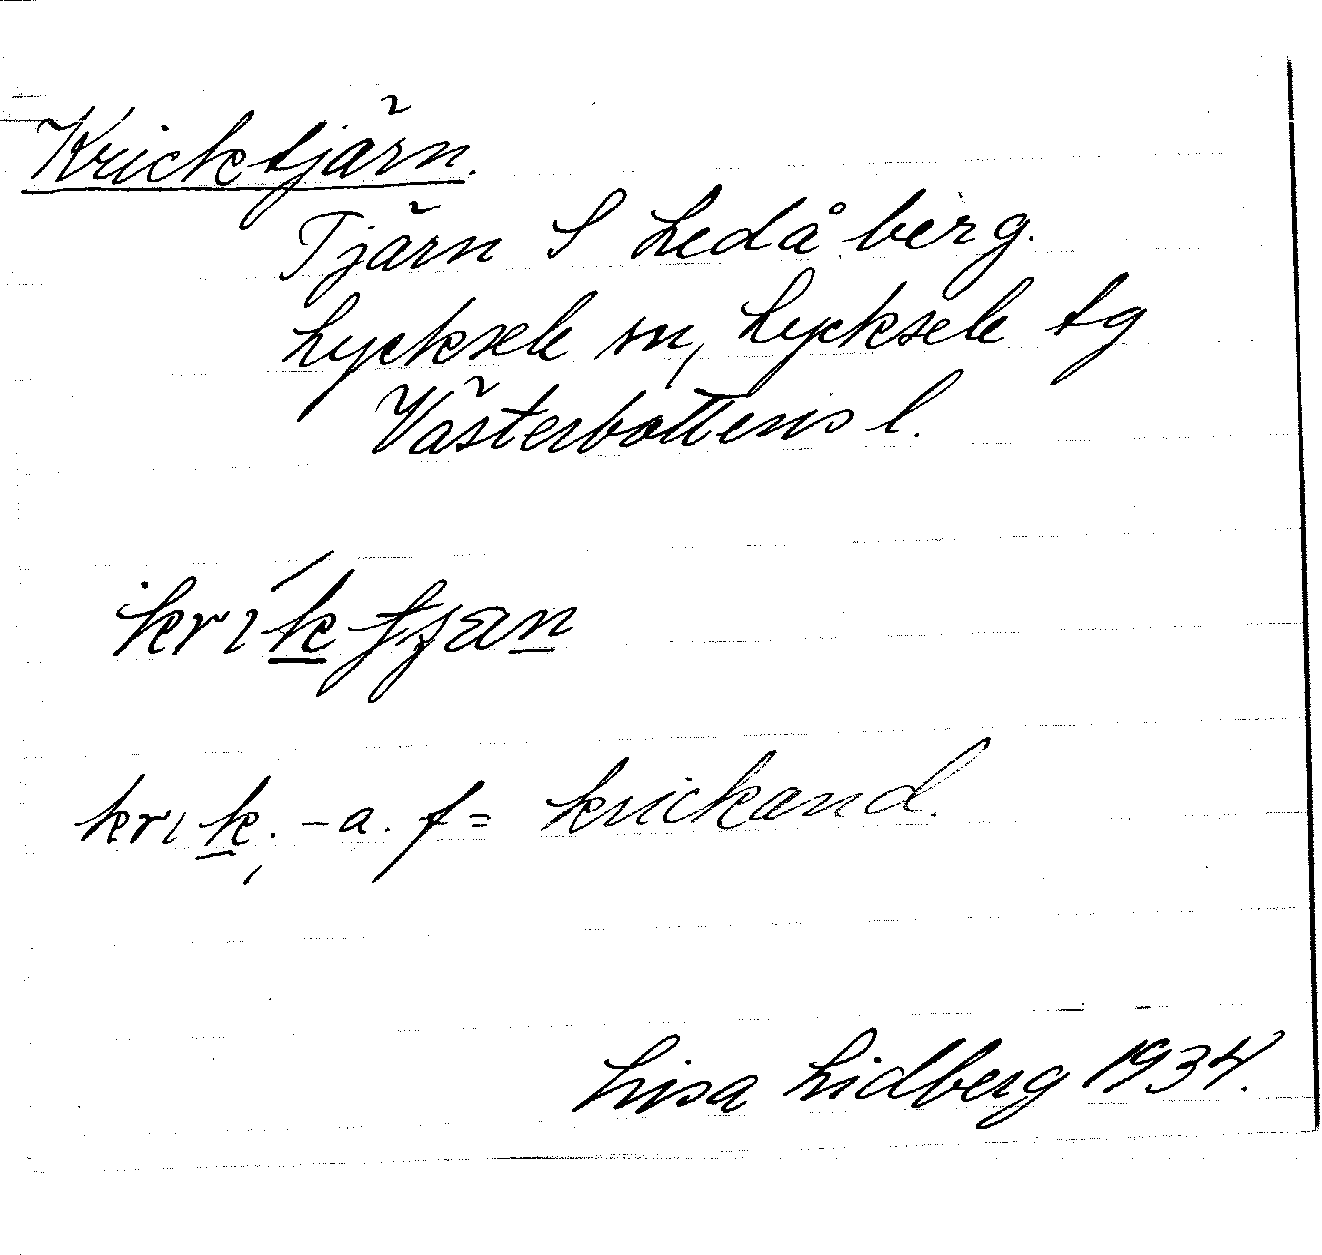 Kricktjärn.
Tjärn S Ledåberg.
Lycksele sn, Lycksele tg
Västerbottens l.
krík
krik. -a. f = krickand.
Lisa Lidberg 1934.